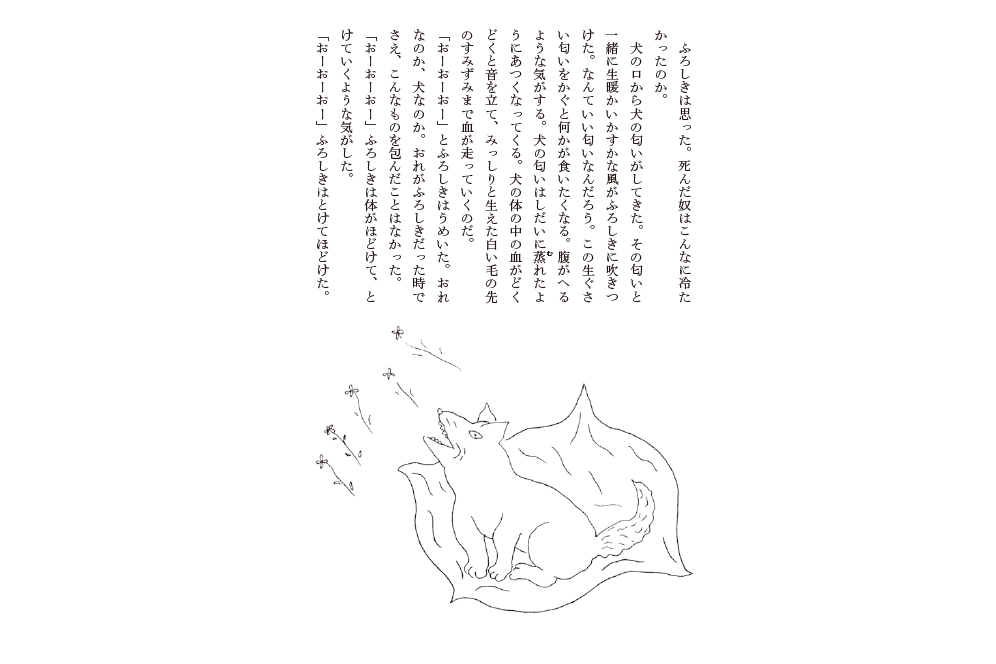 ふろしきは思った。死んだ奴はこんなに冷た
かったのか。
犬の口から犬の匂いがしてきた。その匂いと
一緒に生暖かいかすかな風がふろしきに吹きつ
けた。なんていい匂いなんだろう。この生ぐさ
い匂いをかぐと何かが食いたくなる。腹がへる
ような気がする。犬の匂いはしだいに蒸れたよ
うにあつくなってくる。犬の体の中の血がどく
どくと音を立て、みっしりと生えた白い毛の先
のすみずみまで血が走っていくのだ。
「おーおーおー」とふろしきはうめいた。おれ
なのか、犬なのか。おれがふろしきだった時で
さえ、こんなものを包んだことはなかった。
「おーおーおー」ふろしきは体がほどけて、と
けていくような気がした。
「おーおーおーおー」ふろしきはとけてほどけた。